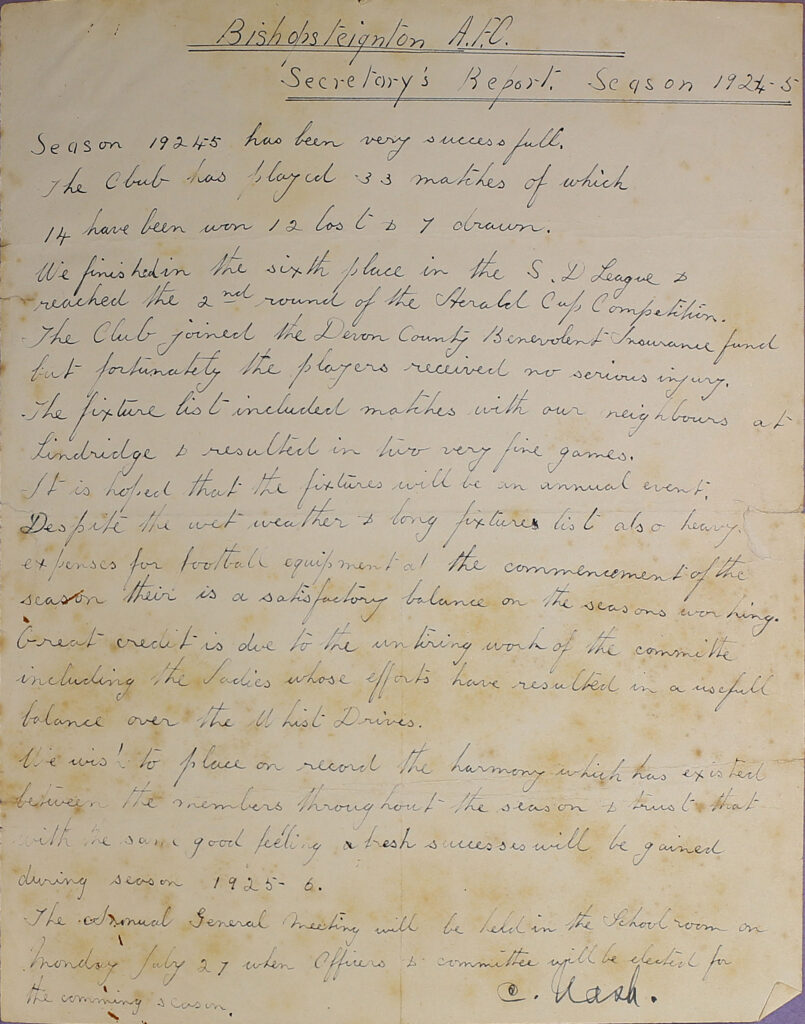 Bishopsteignton A.F.C.
Secretary's Report. Season 1924-5
Season 19245 has been very successfull.
The Club has played 33 matches of which
14 have been won 12 lost & 7 drawn.
We finished in the sixth place in the S. D League &
reached the 2nd round of the Herald Cup Competition.
The Club joined the Devon County Benevolent Insurance fund
but fortunately the players received no serious injury.
The fixture list included matches with our neighbours at
Lindridge & resulted in two very fine games.
It is hoped that the fixtures will be an annual event.
Despite the wet weather & long fixtures list also heavy
expenses for football equipment at the commencement of the
season their is a satisfactory balance on the seasons working.
Great credit is due to the untiring work of the committe
including the Ladies whose efforts have resulted in a usefull
balance over the Whist Drives.
We wish to place on record the harmony which has existed
between the members throughout the season & trust that
with the same good feeling fresh successes will be gained
during season 1925-6.
The Annual General Meeting will be held in the Schoolroom on
Monday July 27 when Officers & committee will be elected for
the comming season.
C. Nash.